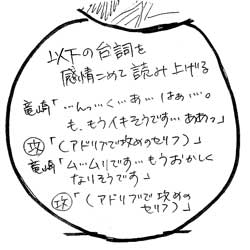 以下の台詞を
感情こめて読み上げる
竜崎「…んっ…く…あ…はぁ…。
も、もうイキそうです…ああっ」
攻「（アドリブで攻めのセリフ）」
竜崎「ム…ムリです…もうおかしく
なりそうです」
攻「（アドリブで攻めの
セリフ）」